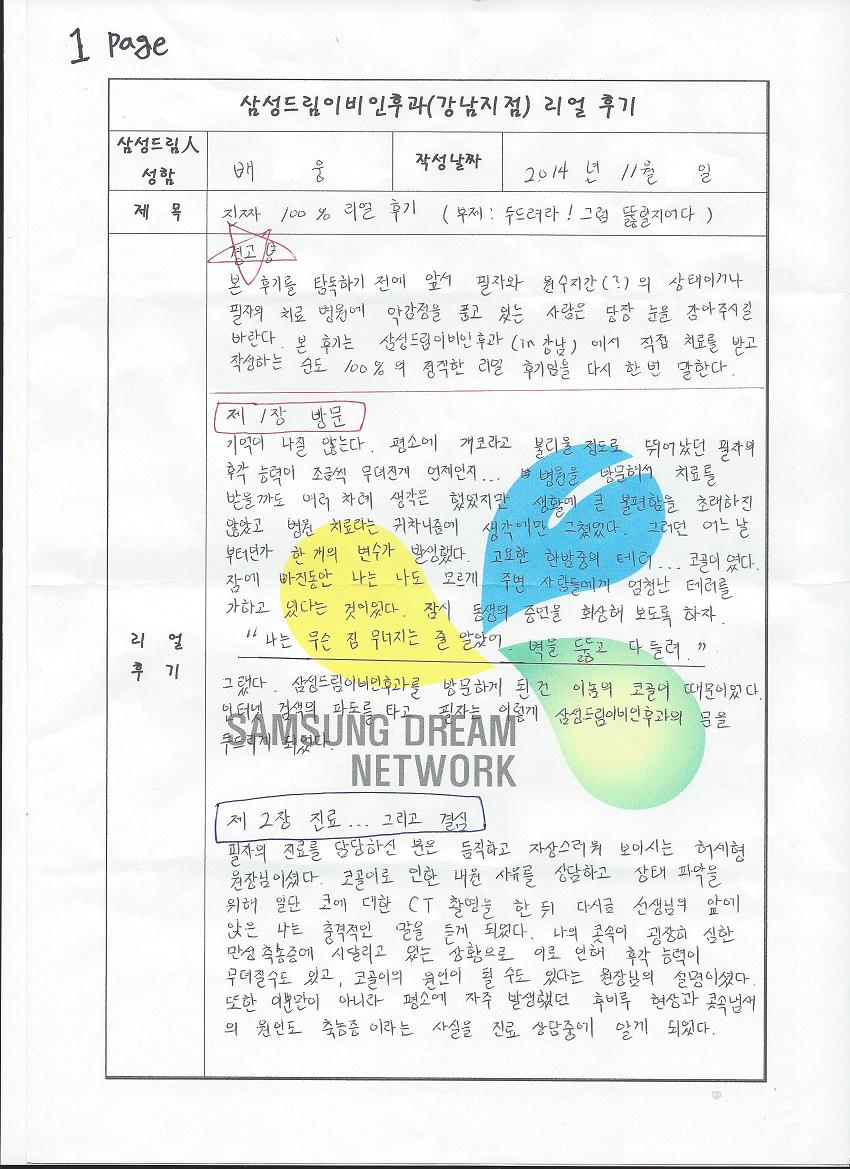 1 Page
삼성드림이비인후과(강남지점) 리얼 후기
삼성드림人 성함
배 웅
작성날짜
2014 년 11월 일
제 목
진짜 100% 리얼 후기 (부제: 두드려라! 그럼 뚫릴지어다)
리 얼
후 기
경고
본 후기를 탐독하기 전에 앞서 필자와 원수지간(?)의 상태이거나
필자의 치료 병원에 악감정을 품고 있는 사람은 당장 눈을 감아주시길
바란다. 본 후기는 삼성드림이비인후과 (in 강남) 에서 직접 치료를 받고
작성하는 순도 100%의 정직한 리얼 후기임을 다시 한번 말한다.
제 1장 방문
기억이 나질 않는다. 평소에 개코라고 불리울 정도로 뛰어났던 필자의
후각 능력이 조금씩 무뎌진게 언제인지... 병원을 방문해서 치료를
받을까도 여러 차례 생각은 했었지만 생활에 큰 불편함을 초래하진
않았고 병원 치료라는 귀차니즘에 생각에만 그쳤었다. 그러던 어느 날
부터인가 한 개의 변수가 발생했다. 고요한 한밤중의 테러... 코골이였다.
잠에 빠진동안 나는 나도 모르게 주변 사람들에게 엄청난 테러를
가하고 있다는 것이었다. 잠시 동생의 증언을 회상해 보도록 하자.
“나는 무슨 집 무너지는 줄 알았어. 벽을 뚫고 다 들려.”
그랬다. 삼성드림이비인후과를 방문하게 된 건 이놈의 코골이 때문이었다.
인터넷 검색의 파도를 타고 필자는 이렇게 삼성드림이비인후과의 문을
두드리게 되었다.
SAMSUNG DREAM
NETWORK
제 2장 진료... 그리고 결심
필자의 진료를 담당하신 분은 듬직하고 자상스러워 보이시는 허세형
원장님이셨다. 코골이로 인한 내원 사유를 상담하고 상태 파악을
위해 일단 코에 대한 CT 촬영을 한 뒤 다시금 선생님의 앞에
앉은 나는 충격적인 말을 듣게 되었다. 나의 콧속이 굉장히 심한
만성 축농증에 시달리고 있는 상황으로 이로 인해 후각 능력이
무뎌질수도 있고, 코골이의 원인이 될 수도 있다는 원장님의 설명이셨다.
또한 이뿐만이 아니라 평소에 자주 발생했던 후비루 현상과 콧속냄새
의 원인도 축농증 이라는 사실을 진료 상담중에 알게 되었다.